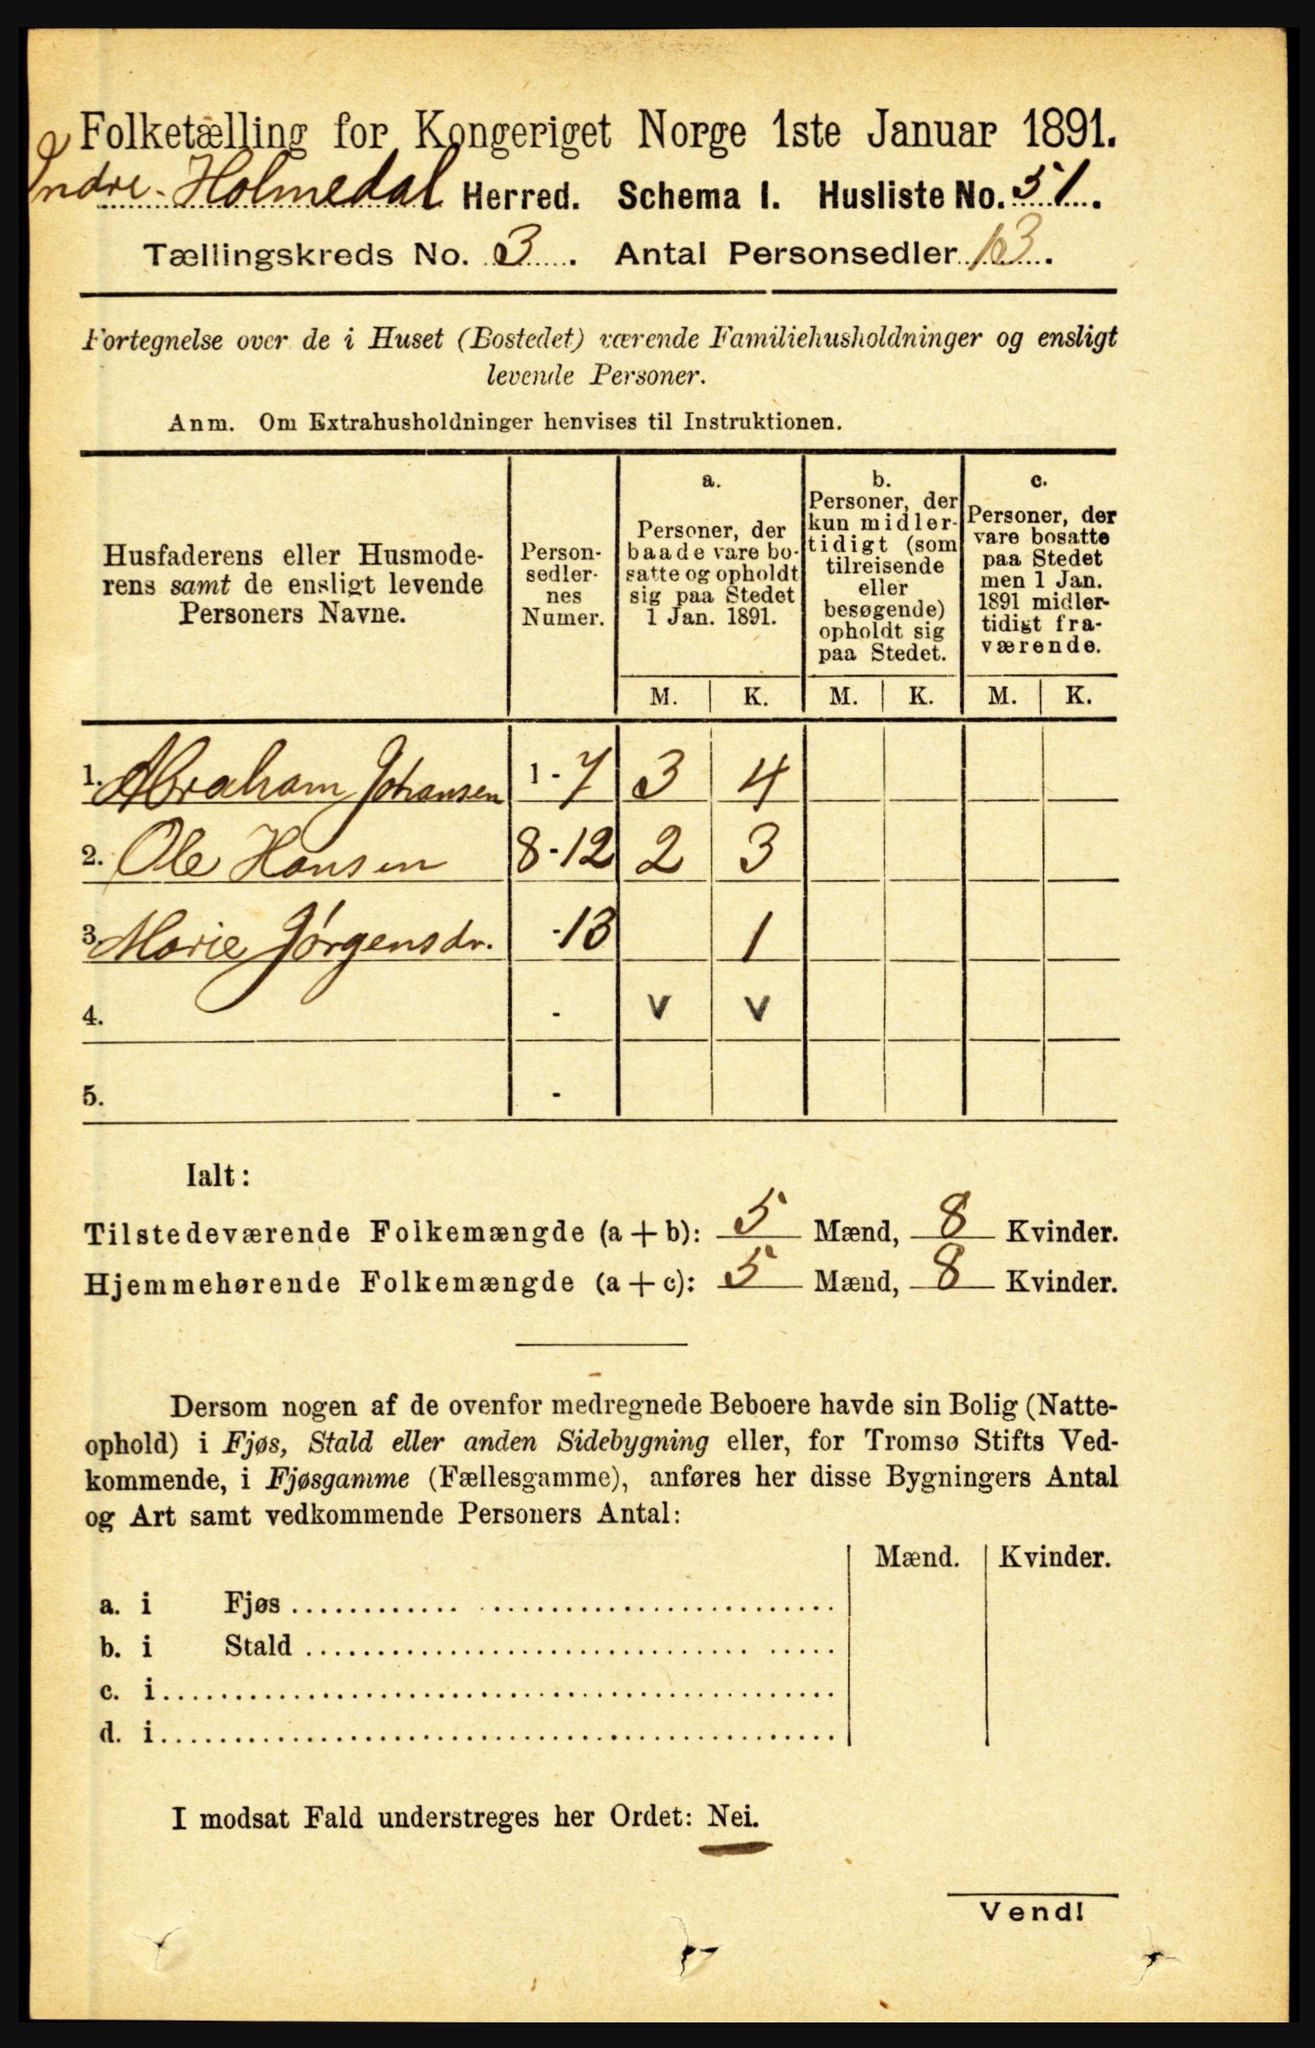 Folketælling for Kongeriget Norge 1ste Januar 1891.
Indre Holmedal Herred. Schema I. Husliste No. 51.
Tællingskreds No. 3. Antal Personsedler 13.
Fortegnelse over de i Huset (Bostedet) værende Familiehusholdninger og ensligt
levende Personer.
Anm. Om Extrahusholdninger henvises til Instruktionen.
Husfaderens eller Husmode-
rens samt de ensligt levende
Personers Navne.
Person-
sedler-
nes
Numer.
a.
Personer, der
baade vare bo-
satte og opholdt
sig paa Stedet
1 Jan. 1891.
b.
Personer, der
kun midler-
tidigt (som
tilreisende
eller
besøgende)
opholdt sig
paa Stedet.
c.
Personer, der
vare bosatte
paa Stedet
men 1 Jan.
1891 midler-
tidigt fra-
værende.
M. K. M. K. M. K.
1. Abraham Johansen 1 - 7 3 4
2. Ole Hansen 8 - 12 2 3
3. Marie Jørgensdr. - 13 1
4. - v v
5. -
Ialt:
Tilstedeværende Folkemængde (a + b): 5 Mænd, 8 Kvinder.
Hjemmehørende Folkemængde (a + c): 5 Mænd, 8 Kvinder.
Dersom nogen af de ovenfor medregnede Beboere havde sin Bolig (Natte-
ophold) i Fjøs, Stald eller anden Sidebygning eller, for Tromsø Stifts Ved-
kommende, i Fjøsgamme (Fællesgamme), anføres her disse Bygningers Antal
og Art samt vedkommende Personers Antal:
Mænd. Kvinder.
a. i Fjøs
b. i Stald
c. i
d. i
I modsat Fald understreges her Ordet: Nei.
Vend!